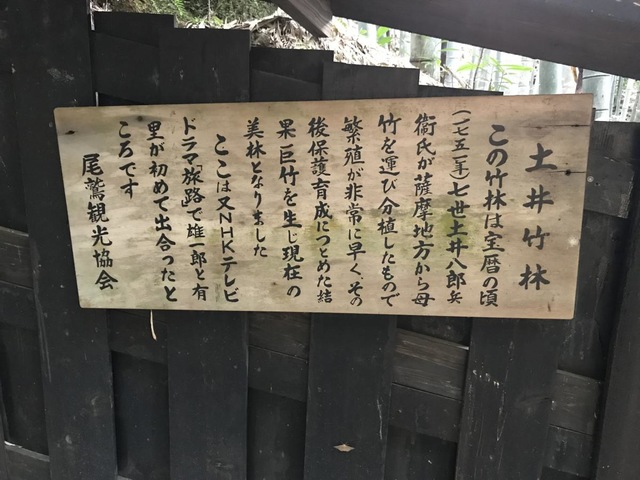 土井竹林
この竹林は宝暦の頃
(一七五一年)七世土井八郎兵
衞氏が薩摩地方から母
竹を運び分植したもので
繁殖が非常に早く、その
後保護育成につとめた結
果巨竹を生じ現在の
美林となりました
ここは又NHKテレビ
ドラマ「旅路」で雄一郎と有
里が初めて出合ったと
ころです
尾鷲観光協会